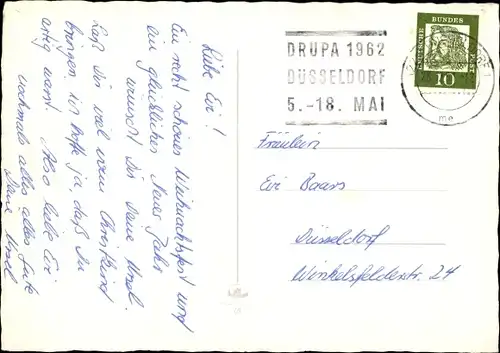 Liebe Evi!
Ein recht schönes Weihnachtsfest und
ein glückliches Neues Jahr
wünscht Dir Deine Ursel.
Laß Dir viel vom Christkind
bringen. Ich hoffe ja, daß Du
artig warst. Also liebe Evi
nochmals alles alles Gute
Deine Ursel
DRUPA 1962
DÜSSELDORF
5.-18. MAI
DEUTSCHE BUNDESPOST
10
me
Fräulein
Evi Baars
Düsseldorf
Winkelsfelderstr. 24